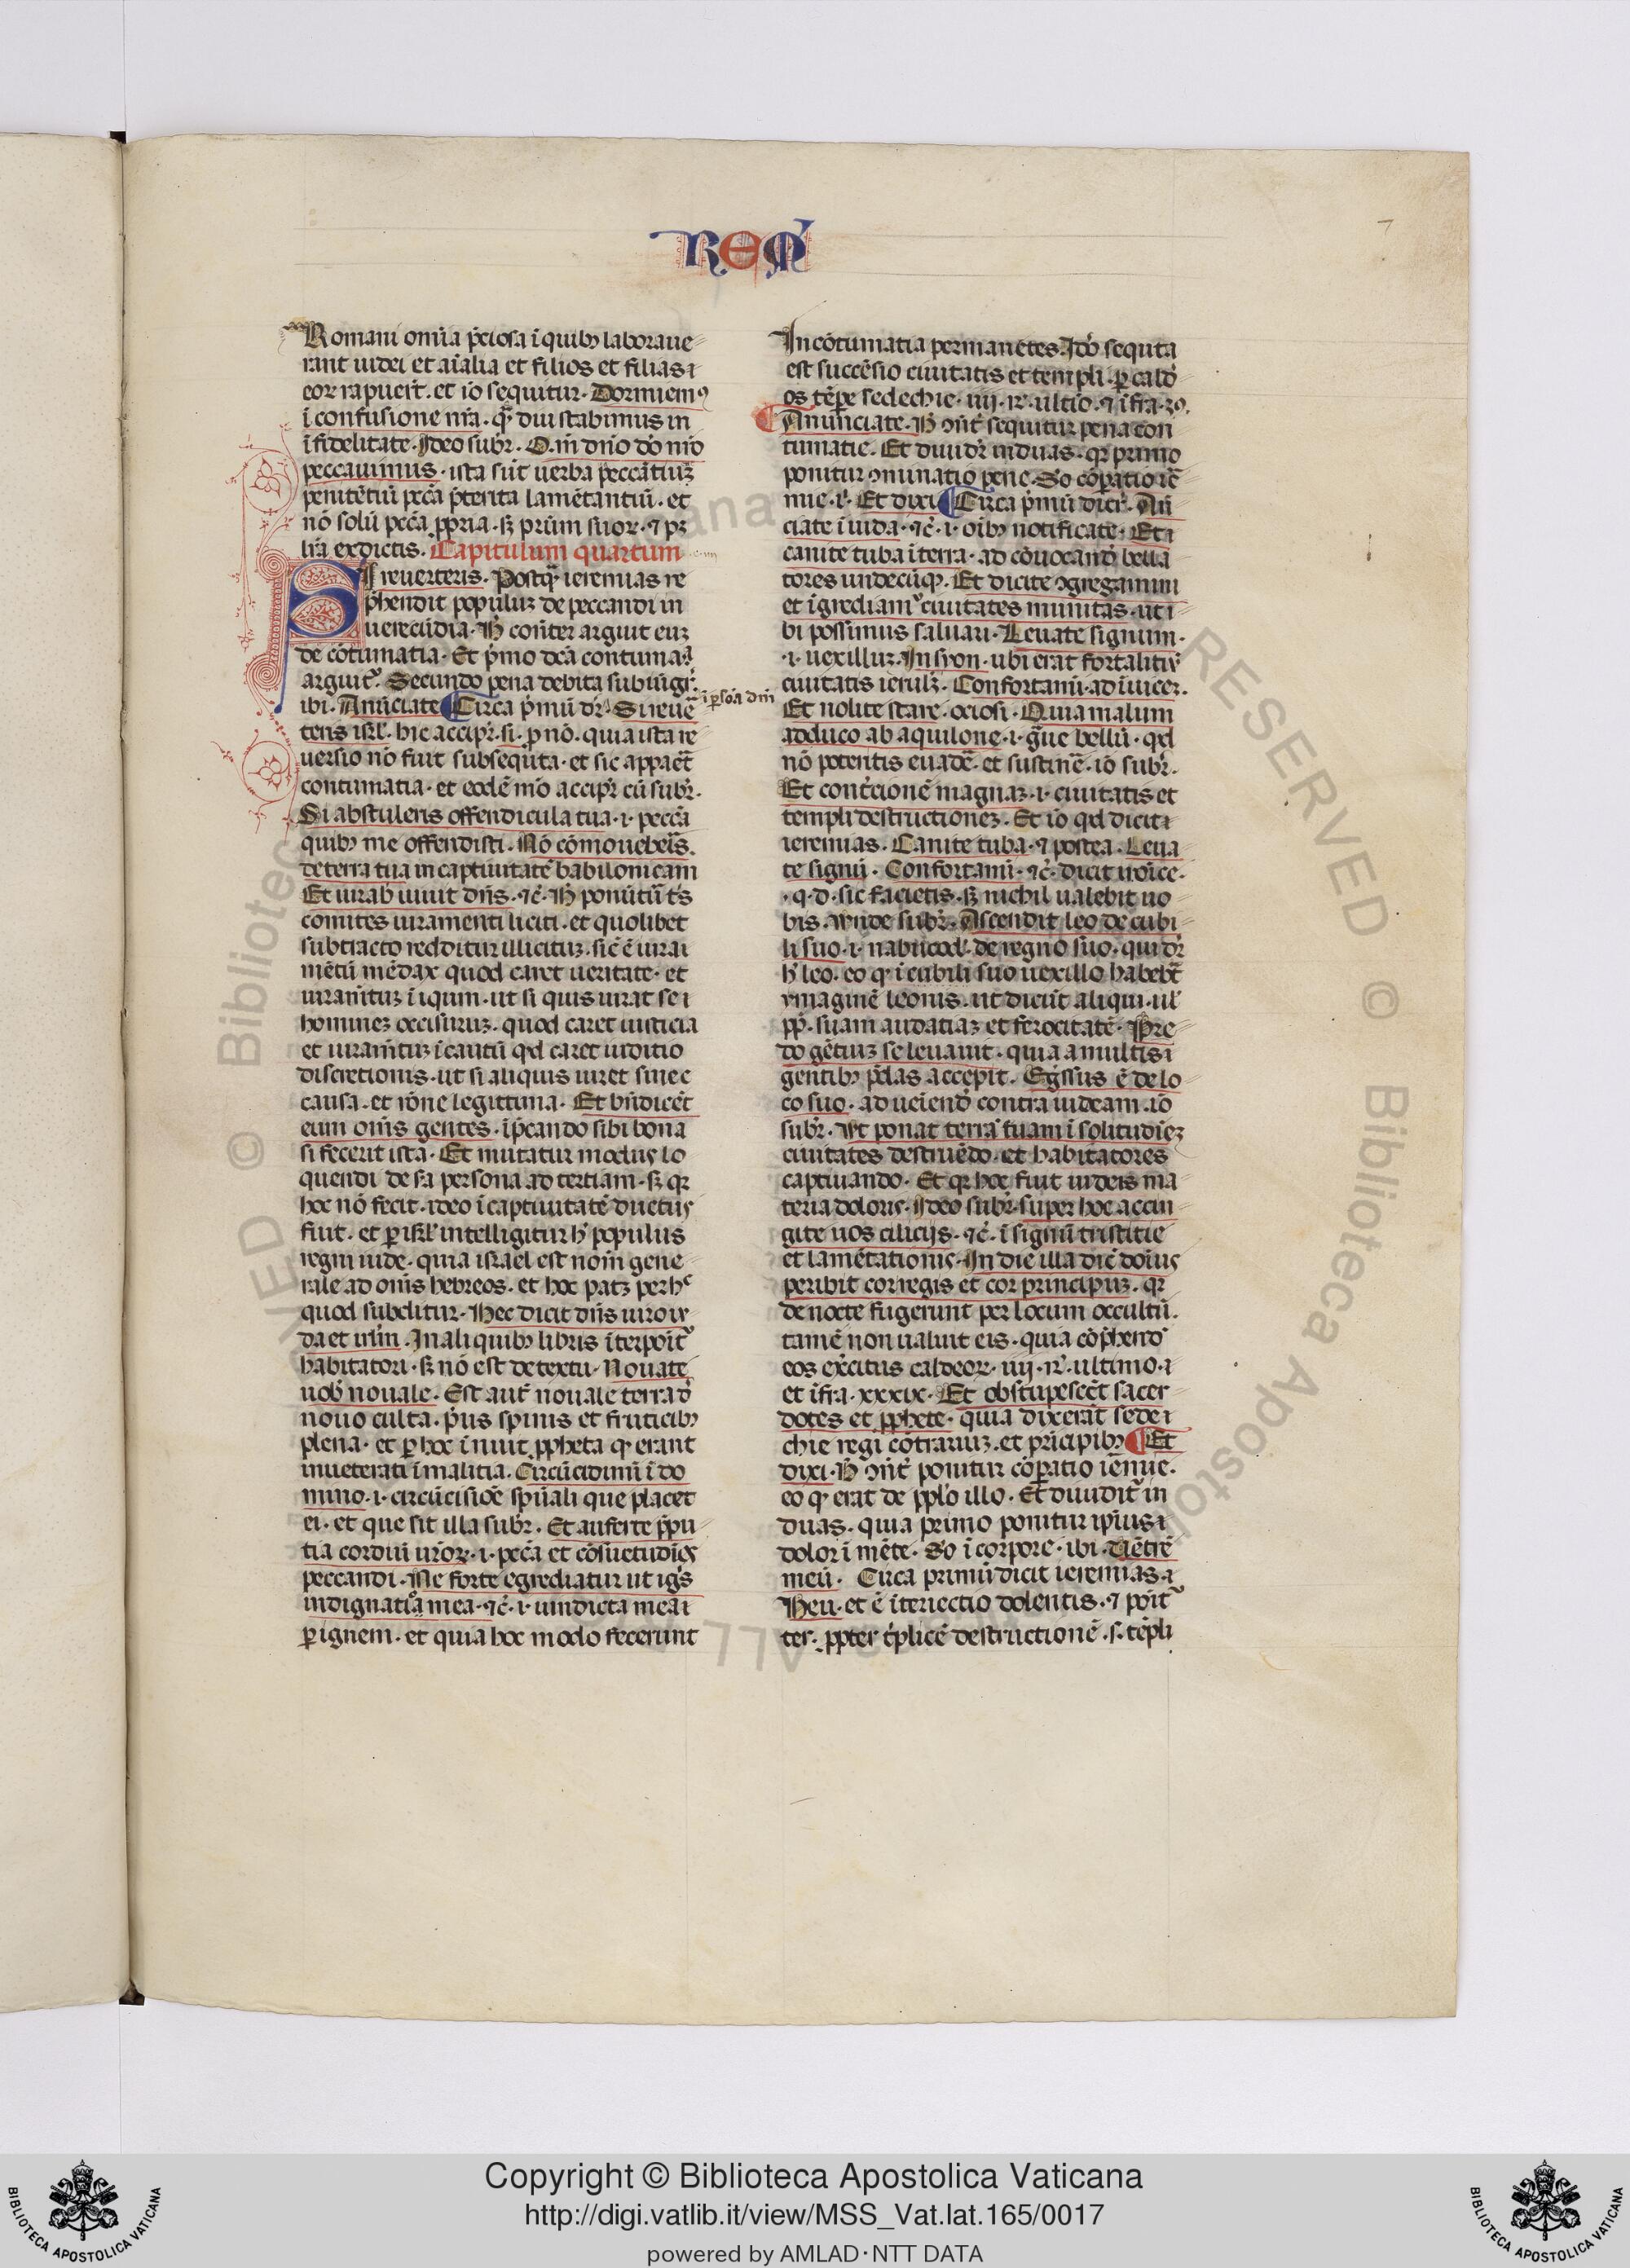 REM
7
Romani omīa p̄ciosa ī quibꝫ laboraue
rant iudei et aīalia et filios et filias
eoꝝ rapuer̄t. et io sequitur. Dormiemꝰ
ī confusione nr̄a. qꝛ diu stabimus in
īfidelitate. Ideo subr̄. O. m̄ dn̄o do nr̄o
peccauimus. ista sūt uerba peccātiuꝫ
penitētiū pccā p̄terita lamētantiū. et
nō solū pccā ꝓpria. sꝫ prūm suoꝝ. ⁊ pꝫ
lr̄a ex dictis. Capitulum quartum
Si reuerteris. Postqꝫ ieremias re
p̄hendit populuꝫ de peccandi in
uerecūdia. Hͥ con̄ter arguit euꝫ
de cōtumatia. Et p̄mo dc̄a contumaꝫ
arguitᷣ. Secundo pena debita subiūgiꝫ.
ibi. Anūciate Circa p̄mū dr̄. Si reue
īpsōa dn̄i
teris isrl̄. hic accipr̄. si. ꝓ nō. quia ista re
uersio nō fuit subsequta. et sic appar̄et
contumatia. et eodē mō accipr̄ cū subr̄.
Si abstuleris offendicula tua. i. pccā
quibꝫ me offendisti. Nō cōmoueber̄s.
de terra tua in captiuitatē babilonicam
Et iurab uiuit dn̄s. ⁊c̄. Hͥ ponūtū ts̄
comites iuramenti liciti. et quolibet
subtracto redditur illicituꝫ. sic̄ ē iura
mētū mēdax quod caret ueritate. et
iuram̄tuꝫ īiqum. ut si quis iurat se
hominez occisuruꝫ. quod caret iusticia
et iuram̄tuꝫ īcautū qd̄ caret iuditio
discretionis. ut si aliquis iuret sine
causa. et rōne legittima. Et bn̄dicēt
eum om̄s gentes. īp̄cando sibi bona
si fecerit ista. Et mutatur modus lo
quendi de sc̄a persona ad tertiam. sꝫ qꝛ
hoc nō fecit. ideo ī captiuitatē ductus
fuit. et ꝑ isrl̄ intelligitur hͥ populus
regni iude. quia israel est nom̄ gene
rale ad om̄s hebreos. et hoc patꝫ per hͨ
quod subditur. Hec dicit dn̄s uiro iu
da et irl̄m. In aliquibꝫ libris īterpoītᷣ
habitatori. sꝫ nō est de textu. Nouate
uob̄ nouale. Est aut̄ nouale terra d̄
nouo culta. p̄us spinis et fruticibꝫ
plena. et ꝑ hoc īnuit ꝓpheta qꝫ erant
inueterati ī malitia. Circūcidimī ī do
mino. i. circūcisiōe spūali que placet
ei. et que sit illa subr̄. Et auferte p̄pu
tia cordiū ur̄oꝝ. i. pccā et cōsuetudiēs
peccandi. Ne forte egrediatur ut igs̄
indignatio mea. ⁊c̄. i. uindicta mea
ꝑ ignem. et quia hoc modo fecerunt
In cōtumatia permanētes. Ido sequta
est succēsio ciuitatis et templi. ꝑ cald
os tēpe sedechie. iiij. rͫ. ultīo. ⁊ īfra.
Anunciate. Hͥ ↄn̄t sequitur pena con
tumatie. Et diuidr̄ in duas. qꝛ primo
ponitur ↄminatio pene. So cōpatio ie
mie. i. Et dixi Circa p̄mū dicr̄. An
ciate ī iuda. ⁊c̄. i. oībꝫ notificate. Et
canite tuba ī terra. ad cōuocando bella
tores undecūqꝫ. Et dicite ↄgregamini
et īgrediamᷣ ciuitates munitas. ut i
bi possimus saluari. Leuate signum.
.i. uexilluꝫ. In syon. ubi erat fortalitiū
ciuitatis ierul̄ꝫ. Confortami. ad īuiceꝫ.
Et nolite stare. ociosi. Quia malum
adduco ab aquilone. i. gͣue bellū. qd̄
nō potentis euadē. et sustinē. io subr̄.
Et contͥcionē magnaꝫ. i. ciuitatis et
templi destructioneꝫ. Et io qd̄ dicit
ieremias. Canite tuba. ⁊ postea. Leua
te signū. Confortamī. ⁊c̄. dicit iroīce.
.q.d. sic facietis. sꝫ nichil ualebit uo
bis. Vnde subr̄. Ascendit leo de cubi
li suo. i. nabucod. de regno suo. qui dr̄
hͥ leo. eo qꝫ ī cubili suo uexillo habebat
ymaginē leonis. ut dicūt aliqui. ul̄
ꝓp̄. suam audatiaꝫ et ferocitatē. Pre
do gētiuꝫ se leuauit. quia a multis
gentibꝫ p̄das accepit. Egs̄sus ē de lo
co suo. ad ueīendo contra iudeam. io
subr̄. Vt ponat terrā tuam ī solitudieꝫ
ciuitates destruēdo. et habitatores
captiuando. Et qꝛ hoc fuit iudeis ma
teria doloris. Ideo subr̄. super hoc accin
gite uos cilicijs. ⁊c̄. ī signū tristitie
et lamētationis. In die illa dic̄ dominus
peribit cor regis et cor principuꝫ. qꝛ
de nocte fugerunt per locum occultū.
tamē non ualuit eis. quia cōp̄hendꝰ
eos exercitus caldeoꝝ. iiij. rͫ. ultimo.
et īfra. xxxix. Et obstupescēt sacer
dotes et ꝓphete. quia dixerāt sede
chie regi cōtrariuꝫ. et prīcipibꝫ Et
dixi. Hͥ ↄn̄t ponitur cōpatio iemie.
eo qꝫ erat de pplo illo. Et diuiditᷣ in
duas. quia primo ponitur ipīus
dolor ī mēte. So ī corpore. ibi. Uētrē
meū. Circa primū dicit ieremias.
Heu. et ē īteriectio dolentis. ⁊ poitᷣ
ter. ꝓpter tͥplicē destructionē. s. tēpli
Copyright © Biblioteca Apostolica Vaticana
http://digi.vatlib.it/view/MSS_Vat.lat.165/0017
powered by AMLAD·NTT DATA
BIBLIOTECA APOSTOLICA VATICANA
BIBLIOTECA APOSTOLICA VATICANA